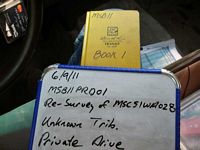 MSB11
BOOK 1
6/9/11
MSB11PR001
Re-Survey of MSC51WR028
Unknown Trib.
Private Drive